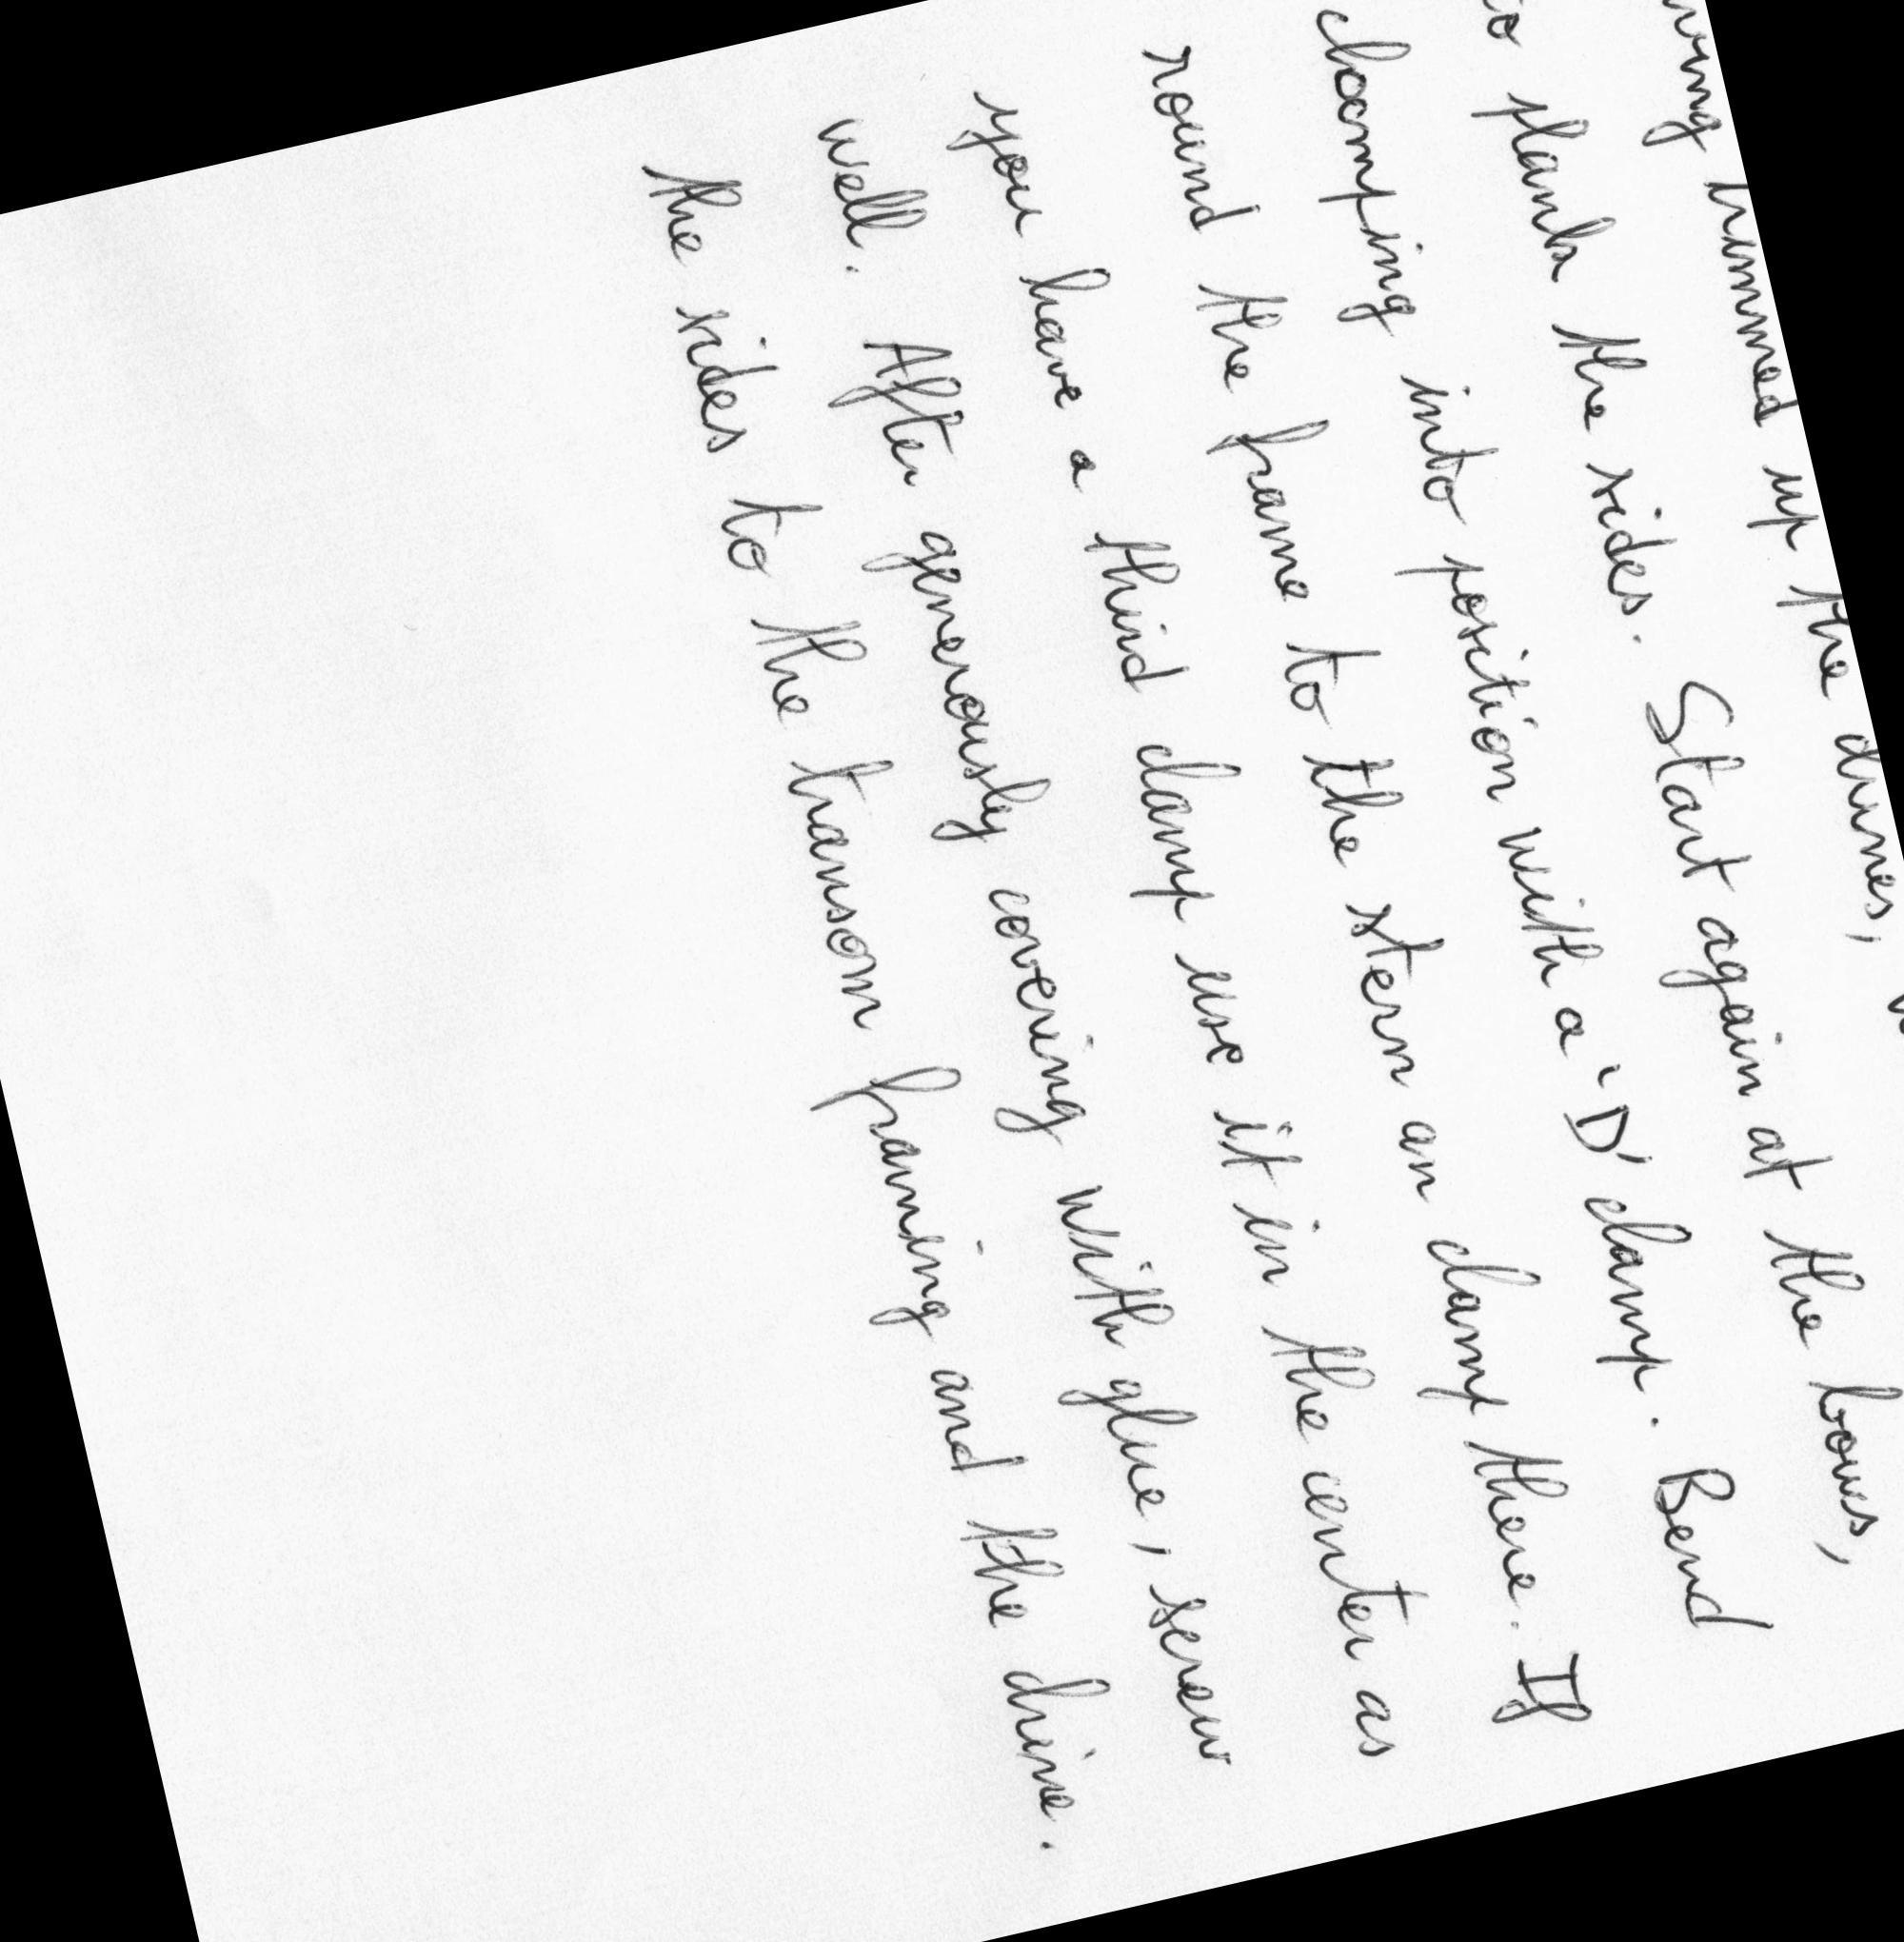 trimmed up the chines,
to plank the sides. Start again at the bows,
clamping into position with a 'D' clamp. Bend
round the frame to the stern an clamp there. If
you have a third clamp use it in the center as
well. After generously covering with glue, screw
the sides to the transom framing and the chine.